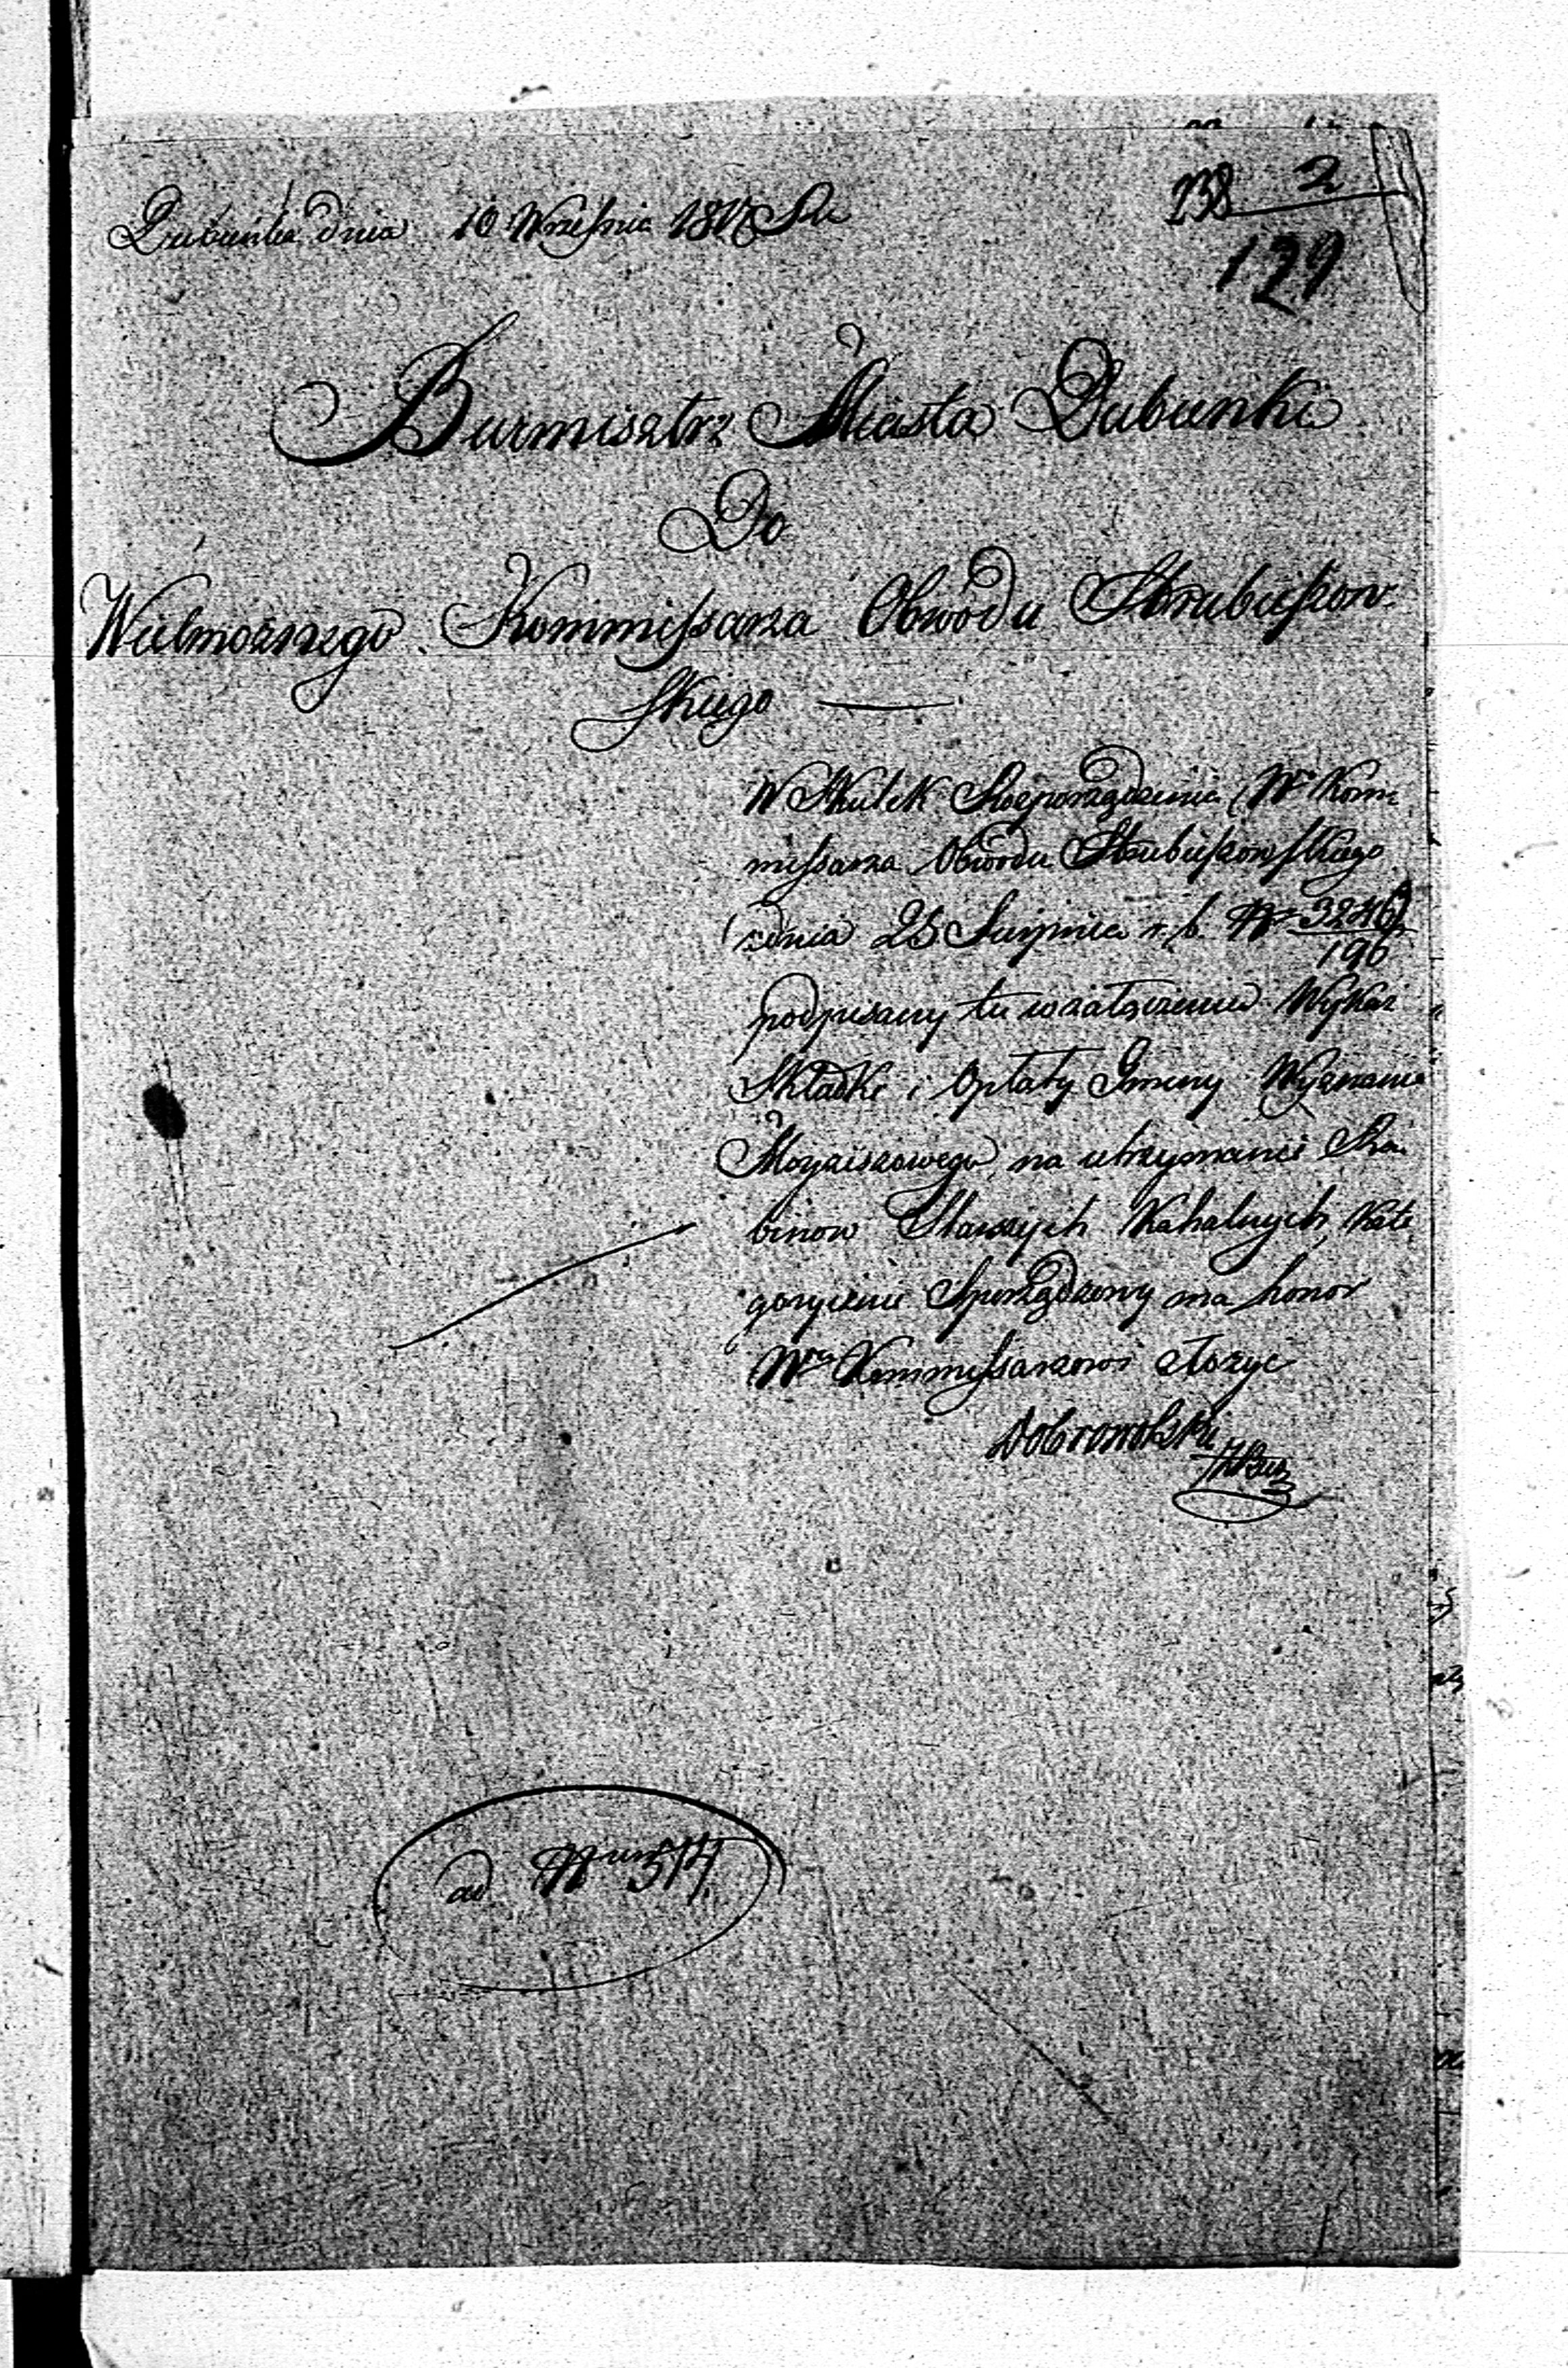 Dubienka dnia 10 Września 1817 Ru
238 2
129
Burmisztrz Miasta Dubienki
Do
Wielmożnego Kommissarza Obwodu Hrubieszow
skiego
W Skutek Rosporządzenia W° Kom
missarza Obwodu Hrubieszowskiego
z dnia 25 Sierpnia r. b. N 3246
196
podpisany tu w załączeniu Wykaz
Składki i Opłaty Gminy Wyznania
Moyżeszowego na utrzymanie Ra
binow Starszych Kahalnych Kate
gorycznie Sporządzony ma honor
W Kommissarzowi złożyć
Dobrowolski
ad Num 514